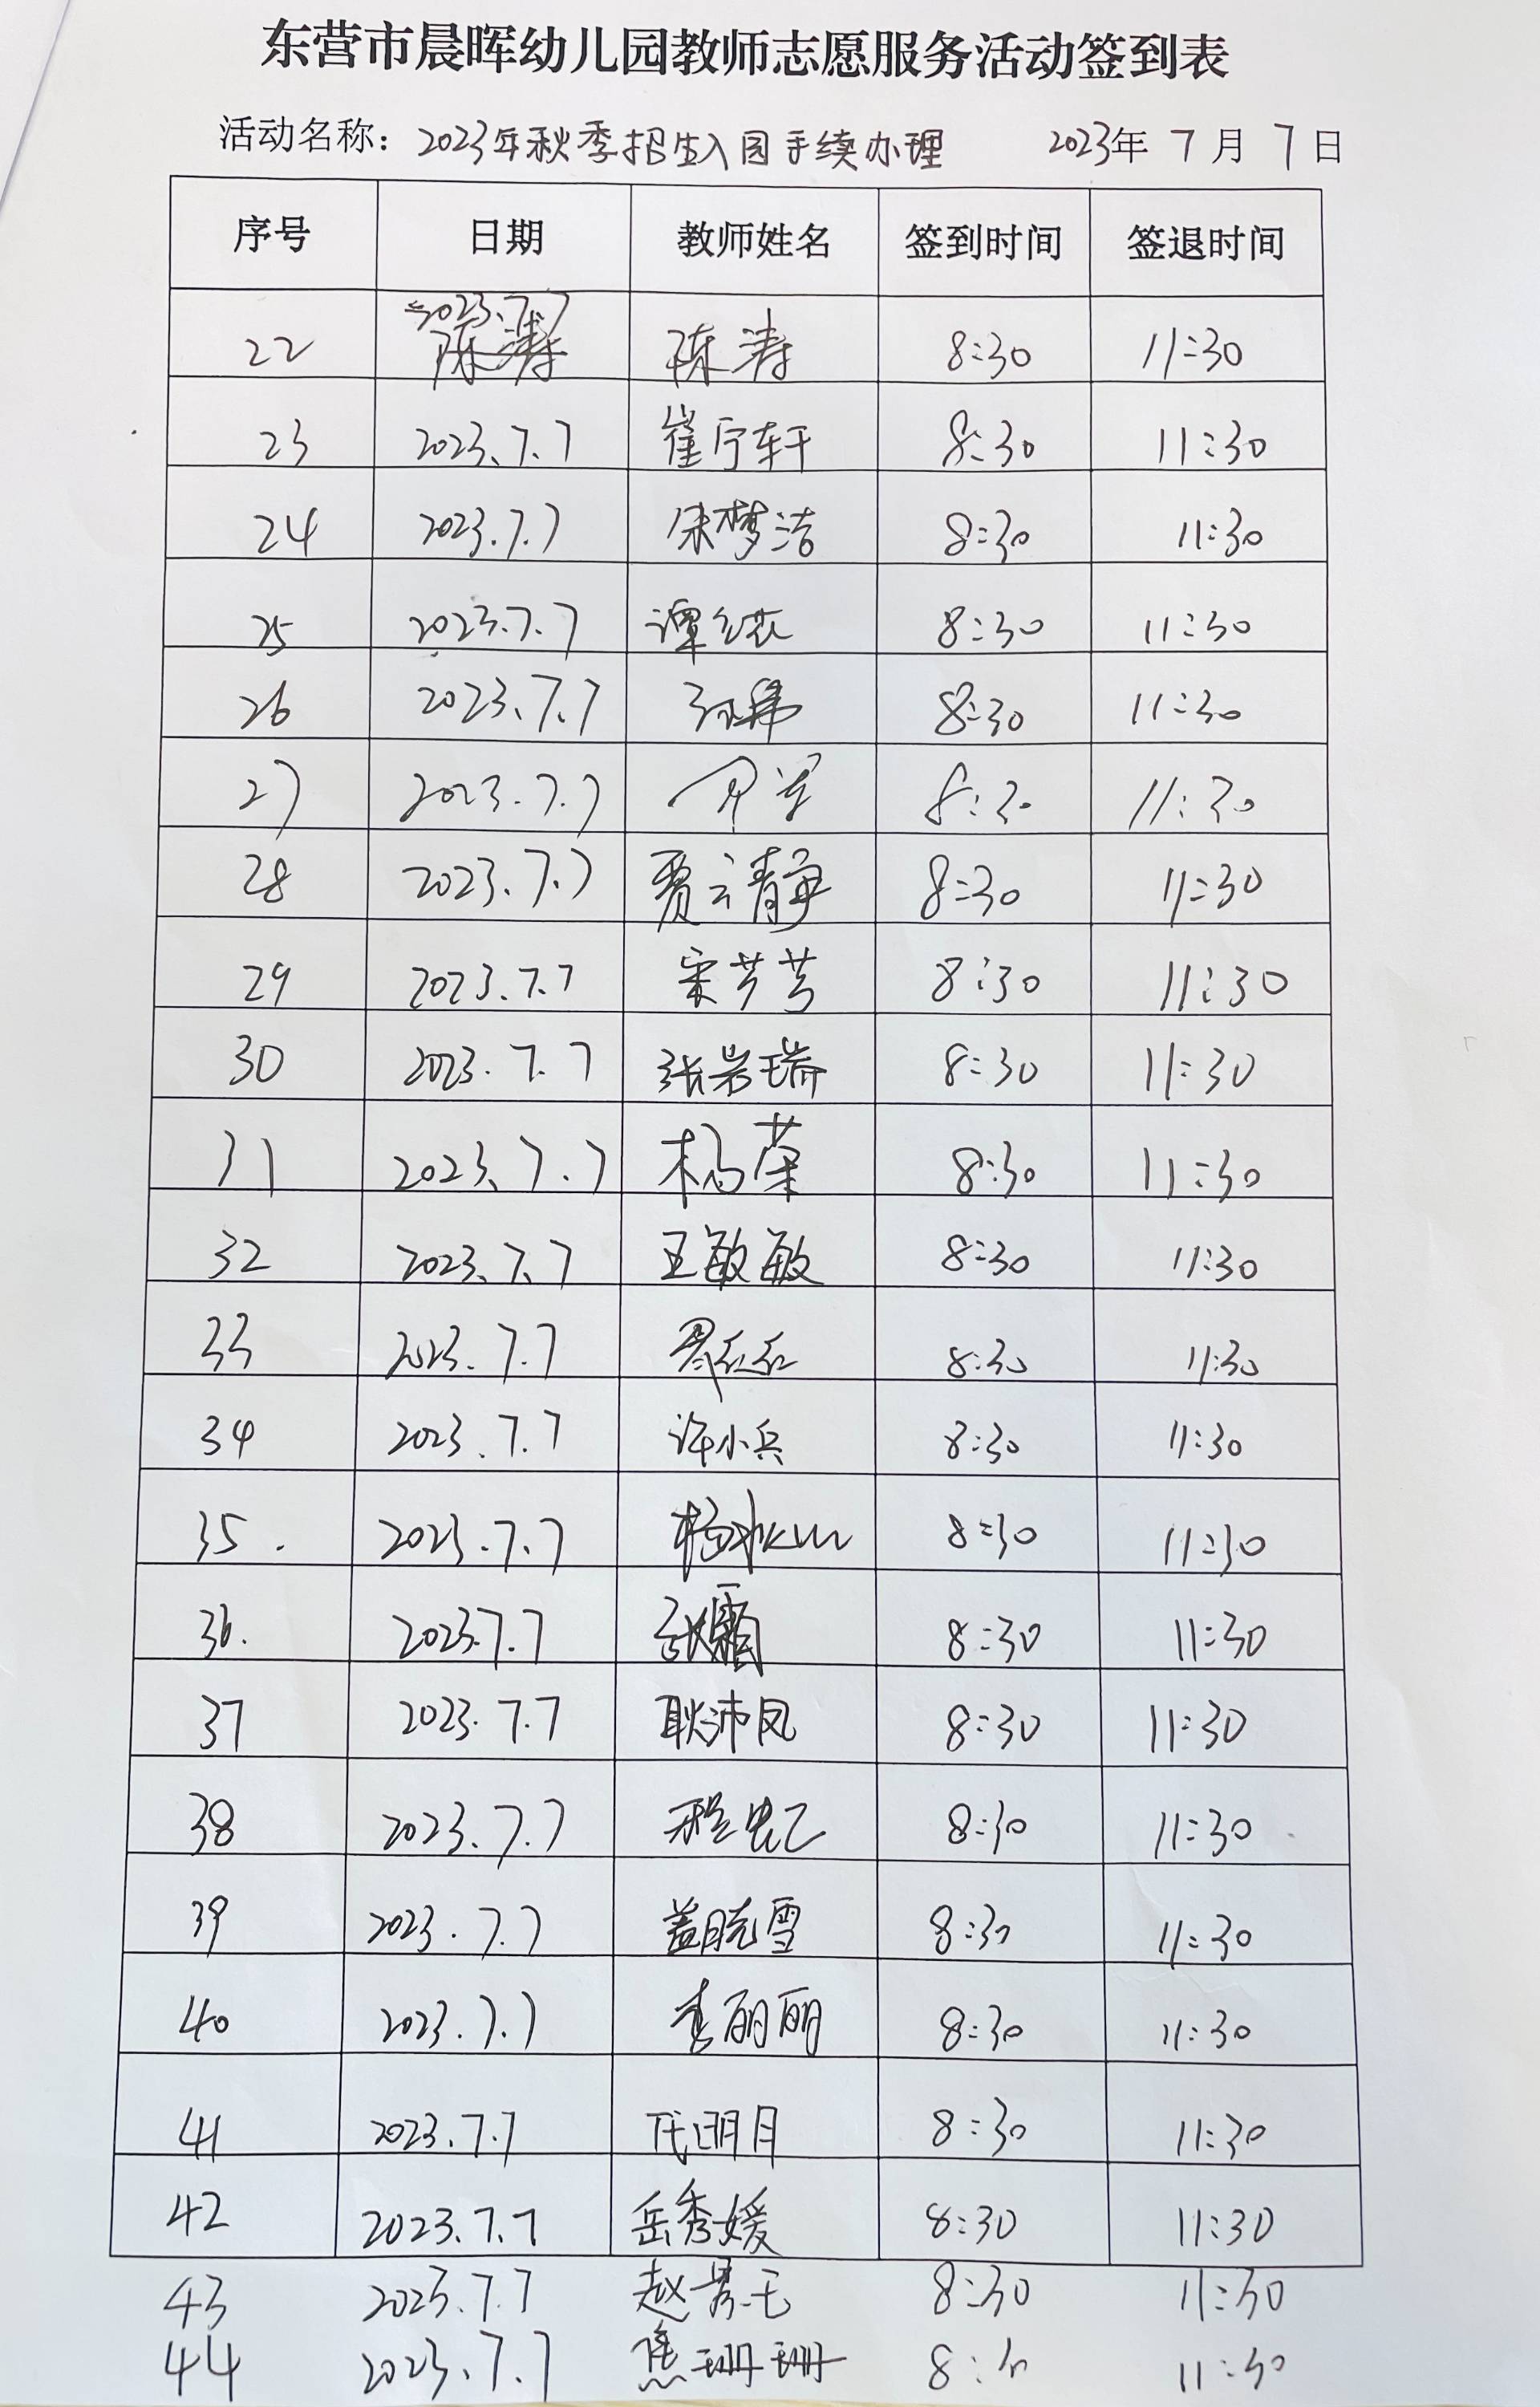 东营市晨晖幼儿园教师志愿服务活动签到表
活动名称：2023年秋季招生入园手续办理 2023年 7 月 7 日
序号 日期 教师姓名 签到时间 签退时间
22 2023.7.7 陈涛 陈涛 8:30 11:30
23 2023.7.7 崔宁轩 8:30 11:30
24 2023.7.7 宋梦洁 8:30 11:30
25 2023.7.7 8:30 11:30
26 2023.7.7 8:30 11:30
27 2023.7.7 8:30 11:30
28 2023.7.7 贾云静 8:30 11:30
29 2023.7.7 宋芳芳 8:30 11:30
30 2023.7.7 张岩瑞 8:30 11:30
31 2023.7.7 杨荣 8:30 11:30
32 2023.7.7 王敏敏 8:30 11:30
33 2023.7.7 8:30 11:30
34 2023.7.7 许小兵 8:30 11:30
35. 2023.7.7 8:30 11:30
36. 2023.7.7 张霜 8:30 11:30
37 2023.7.7 耿沛凤 8:30 11:30
38 2023.7.7 8:30 11:30
39 2023.7.7 盖晓雪 8:30 11:30
40 2023.7.7 李丽丽 8:30 11:30
41 2023.7.7 代明月 8:30 11:30
42 2023.7.7 岳秀媛 8:30 11:30
43 2023.7.7 8:30 11:30
44 2023.7.7 焦珊珊 8:30 11:30